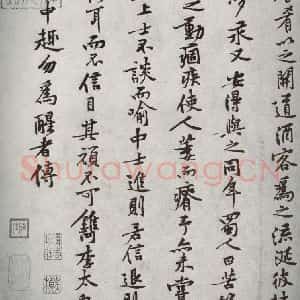 肴以之開道酒客為之流涎彼桂
永又安得與之同年蜀人曰苦
之動痼疾使人萎而瘠予亦未嘗
上士不談而喻中士進則若信退則
耳而不信目其頑不可鐫李太白
中趣勿為醒者傳
Shufawang.CN